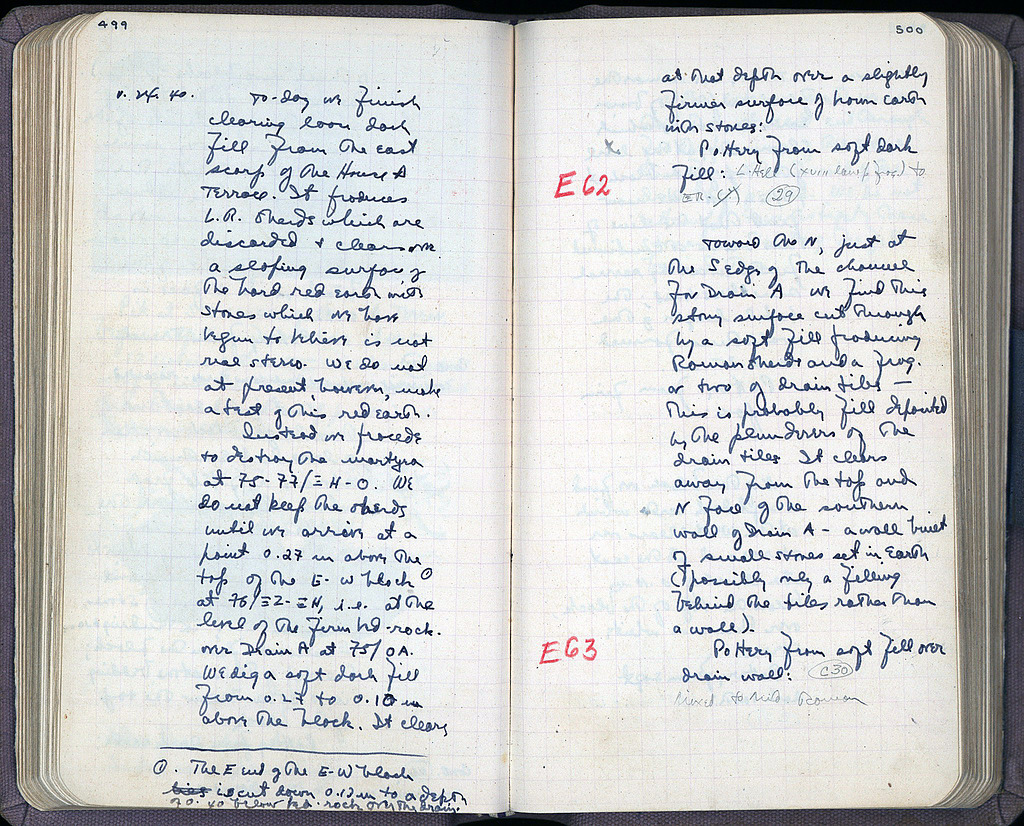 499
V. 24. 40. To-day we finish
clearing loose dark
fill from the east
scarp of the House A
Terrace. It produces
L.R. sherds which are
discarded & clears over
a sloping surface of
the hard red earth with
stones which we have
begun to believe is not
real stereo. We do not
at present, however, make
a test of this red earth.
Instead we procede
to destroy the martyra
at 75-77/ΞH-O. We
do not keep the sherds
until we arrive at a
point 0.27 m above the
top of the E-W block ①
at 76/ΞZ-ΞH, i.e. at the
level of the firm bd-rock.
over Drain A at 75/OA.
We dig a soft dark fill
from 0.27 to 0.10 m
above the block. It clears
①. The E end of the E-W block
is cut down 0.12 m to a depth
of 0.40 below bd. rock over the drain.
500
at that depth over a slightly
firmer surface of brown earth
with stones:
x Pottery from soft dark
E62
fill: L. Hell. (XVIII lamp frag) to
ER (29)
Toward the N, just at
the S edge of the channel
for Drain A we find this
stony surface cut through
by a soft fill producing
Roman sherds and a frag.
or two of drain tiles —
this is probably fill deposited
by the plunderers of the
drain tiles. It clears
away from the top and
N face of the southern
wall of Drain A - a wall built
of small stones set in earth
(possibly only a filling
behind the tiles rather than
a wall).
E63
Pottery from soft fill over
drain wall: C30
Mixed to Mid Roman